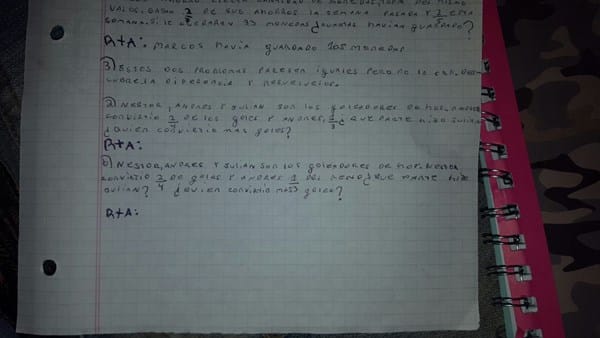 VALOS. GASTO 2/5 DE SUS AHORROS LA SEMANA PASADA Y 2/5 ESTA
SEMANA. SI LE QUEDARON 33 MONEDAS ¿CUANTAS HAVIA GUARDADO?
R+A: MARCOS HAVIA GUARDADO 165 MONEDAS
3) ESTOS DOS PROBLEMAS PARESEN IGUALES PERO NO LO SON.
SOBRE LA DIFERENCIA Y RESUELVELOS.
NESTOR, ANDRES Y JULIAN SON LOS GOLEADORES DE HOY. NESTOR
CONVIRTIO 2/ DE LOS GOLES Y ANDRES, /3 ¿QUE PARTE HIZO JULIAN
¿QUIEN CONVIRTIO MAS GOLES?
R+A:
b) NESTOR, ANDRES Y JULIAN SON LOS GOLEADORES DE HOY. NESTOR
CONVIRTIO 2/4 DE GOLES Y ANDRES 1/3 DEL RESTO ¿QUE PARTE HIZO
JULIAN? ¿QUIEN CONVIRTIO MAS GOLES?
R+A: